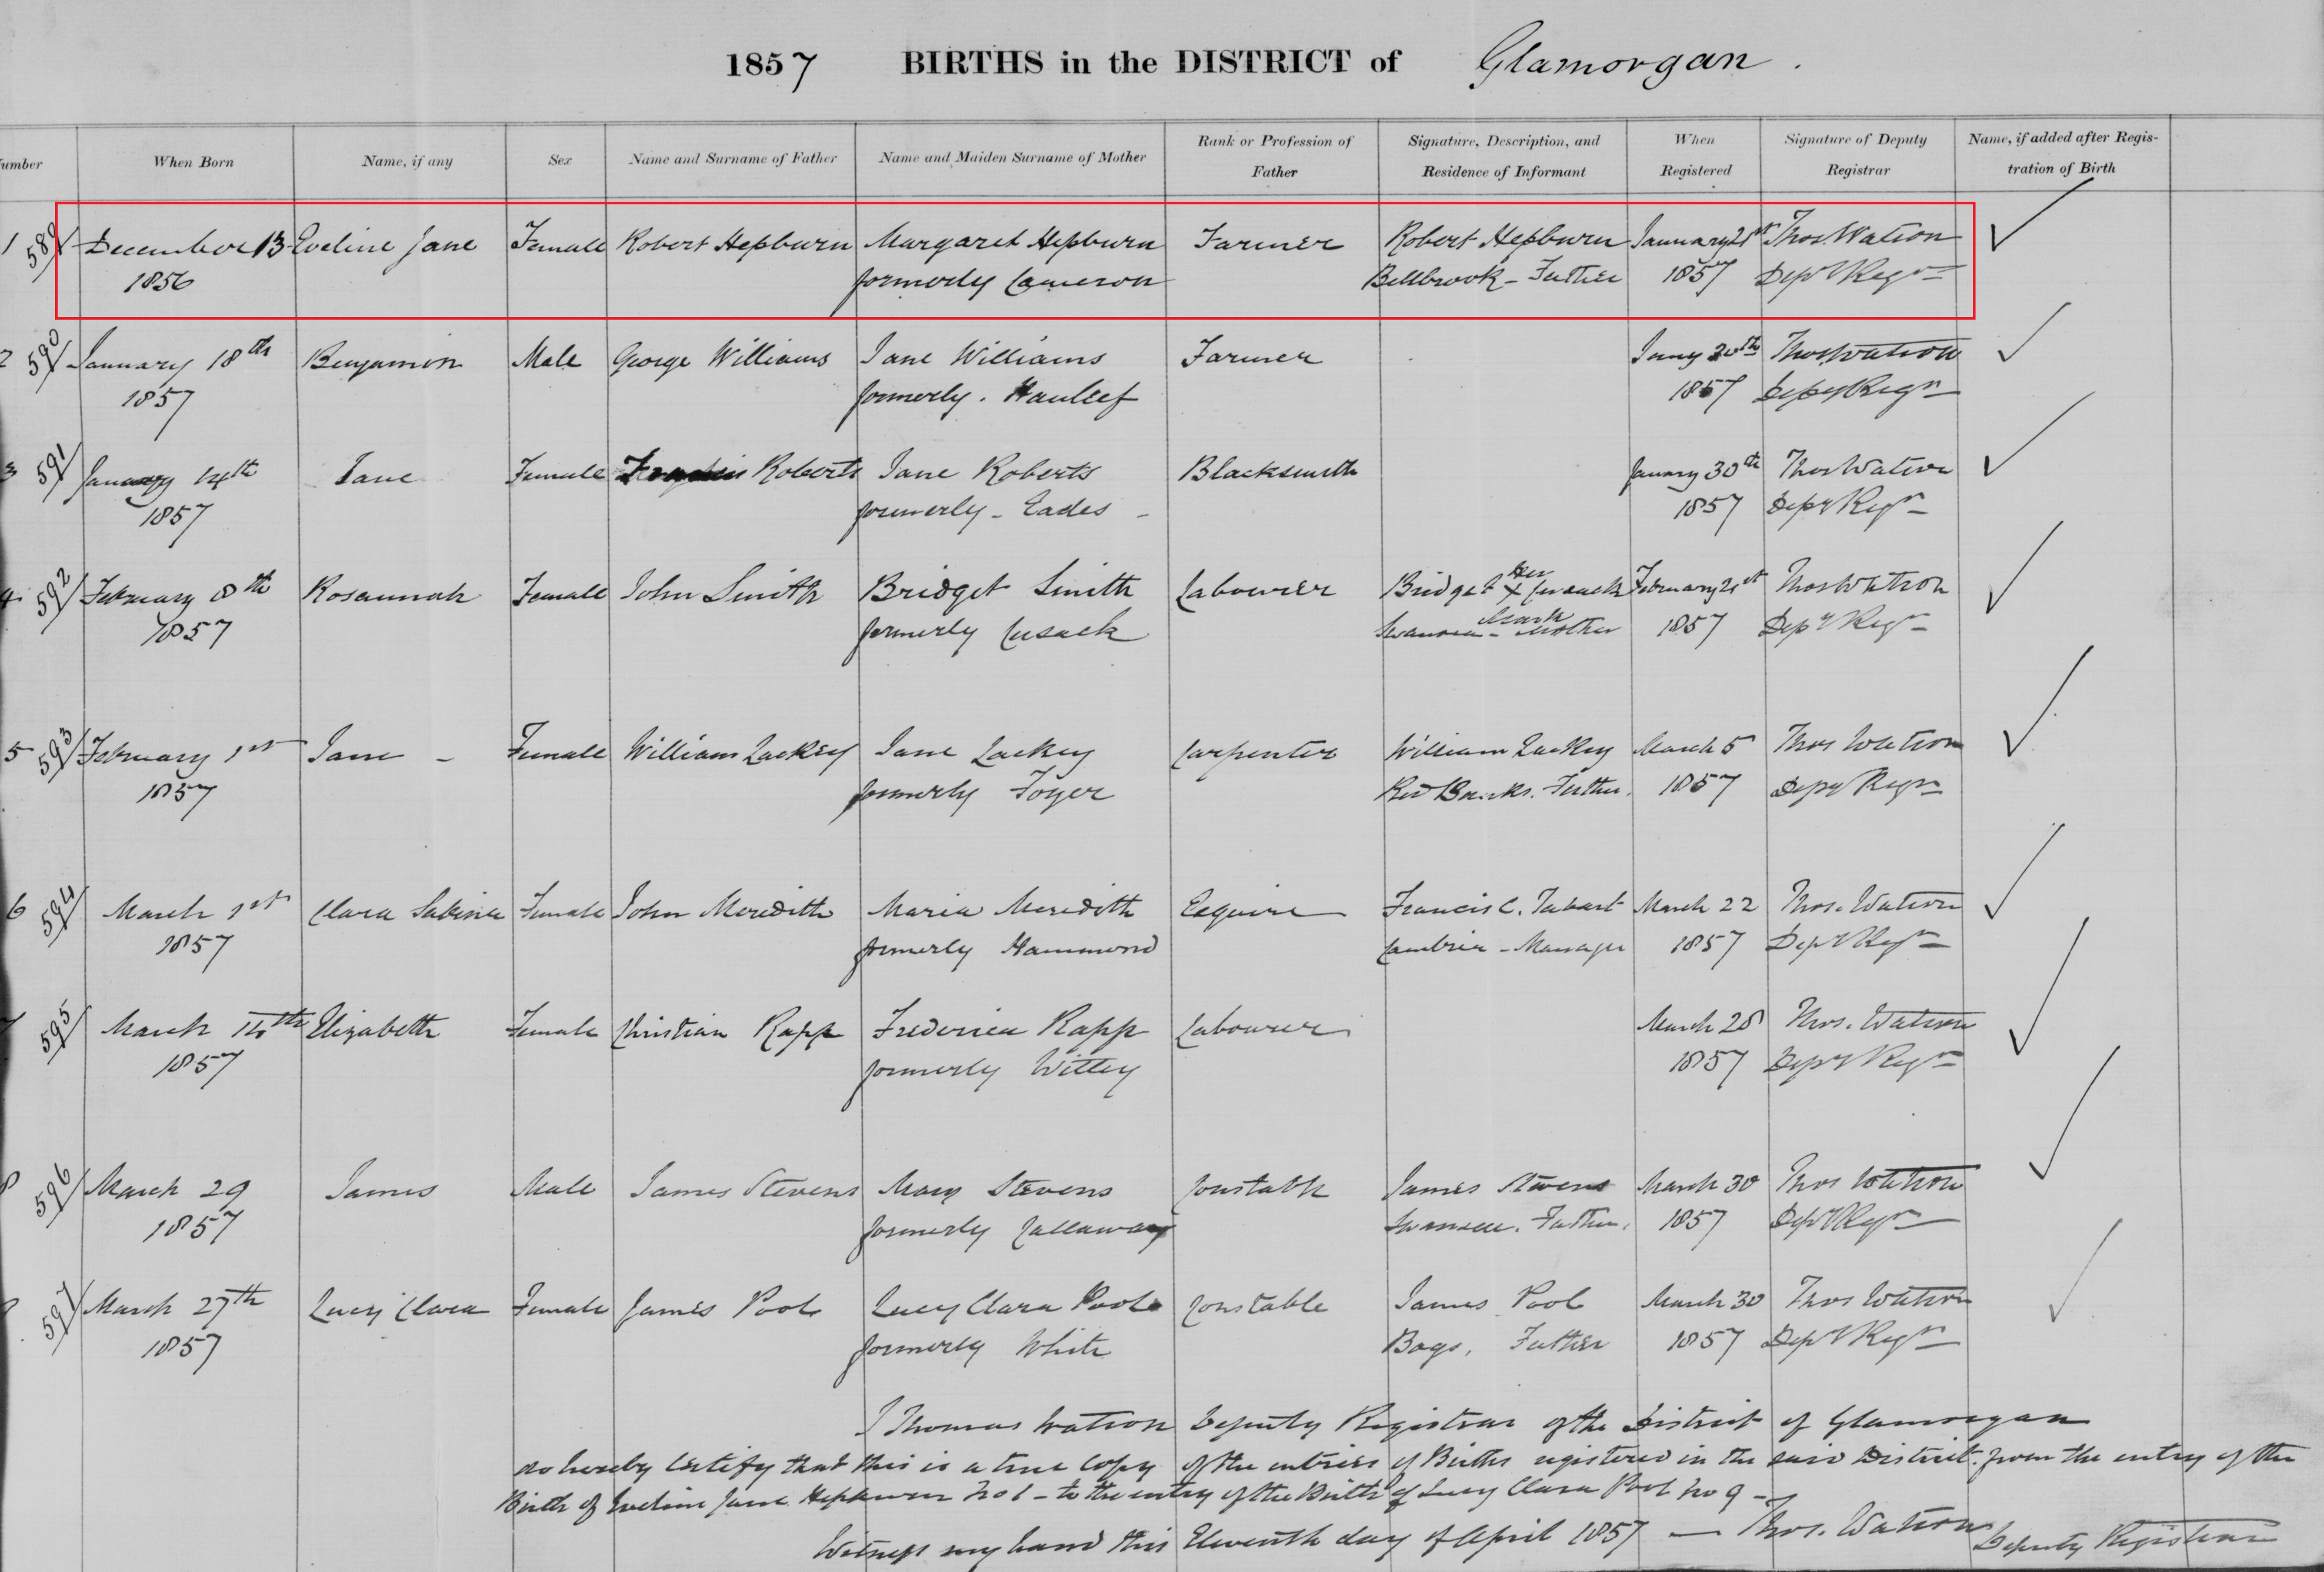 1857 BIRTHS in the DISTRICT of Glamorgan.
Number When Born Name, if any Sex Name and Surname of Father Name and Maiden Surname of Mother Rank or Profession of Father Signature, Description, and Residence of Informant When Registered Signature of Deputy Registrar Name, if added after Registration of Birth
1 589 December 13 Eveline Jane Female Robert Hepburn Margaret Hepburn Farmer Robert Hepburn January 21st Thos. Watson
1856 formerly Cameron Bellbrook - Father 1857 Depy Regr
2 590 January 18th Benjamin Male George Williams Jane Williams Farmer Jany 20th Thos Watson
1857 formerly. 1857 Depy Regr
3 591 January 14th Jane Female Roberts Jane Roberts Blacksmith January 30th Thos Watson
1857 formerly - Eades - 1857 Depy Regr
4 592 February 8th Rosannah Female John Smith Bridget Smith Labourer Bridget her X February 21st Thos Watson
1857 formerly Cusack Swansea - mark Mother 1857 Depy Regr
5 593 February 1st Jane - Female William Lackey Jane Lackey Carpenter William Lackey March 5 Thos Watson
1857 formerly Foyer Red Banks. Father. 1857 Depy Regr
6 594 March 1st Clara Sabina Female John Meredith Maria Meredith Esquire Francis C. Tabart March 22 Thos. Watson
1857 formerly Hammond Cambria - Manager 1857 Depy Regr
7 595 March Elizabeth Female Christian Rapp Frederica Rapp Labourer March 28 Thos. Watson
1857 formerly Wittey 1857 Depy Regr
8 596 March 29 James Male James Stevens Mary Stevens Constable James Stevens March 30 Thos Watson
1857 formerly Callaway Swansea. Father. 1857 Depy Regr
9 597 March 27th Lucy Clara Female James Pool Lucy Clara Pool Constable James Pool March 30 Thos Watson
1857 formerly White Bags. Father 1857 Depy Regr
I Thomas Watson Deputy Registrar of the District of Glamorgan
do hereby Certify that this is a true Copy of the entries of Births registered in the said District from the entry of the
Birth of Eveline Jane Hepburn No 1 - to the entry of the Birth of Lucy Clara Pool No 9 -
Witness my hand this Eleventh day of April 1857 - Thos. Watson Deputy Registrar